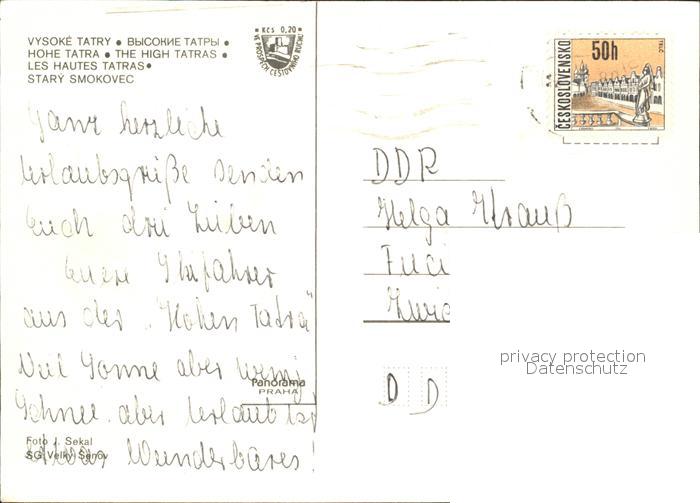 VYSOKÉ TATRY • ВЫСОКИЕ ТАТРЫ •
HOHE TATRA • THE HIGH TATRAS •
LES HAUTES TATRAS •
STARÝ SMOKOVEC
Kčs 0,20
VE PROSPĚCH CESTOVNÍHO RUCHU
Ganz herzliche
Urlaubsgrüße senden
Euch drei Lieben
Euere Skifahrer
aus der „Hohen Tatra"
Viel Sonne aber wenig
Schnee. aber Urlaub ist
etwas Wunderbares!
Panorama
PRAHA
Foto J. Sekal
SG Velký Šenov
ČESKOSLOVENSKO
50h
TELČ
DDR
Helga Krauß
Fuči
Zwic
D D
privacy protection
Datenschutz